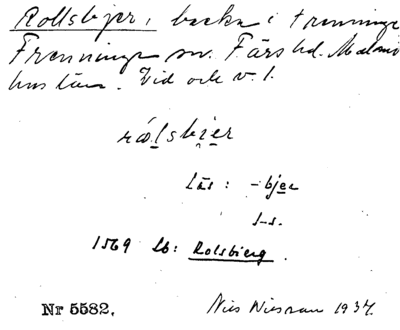 Rollsbjer, backe i Frenninge
Frenninge sn. Färs hd. Malmö
hus län. Vid och v. l.
rå̀lsbjer
Läs: -bjer
s-s.
1569 Lb: Rolsbierg.
Nr 5582. Nils Nilsson 1934.